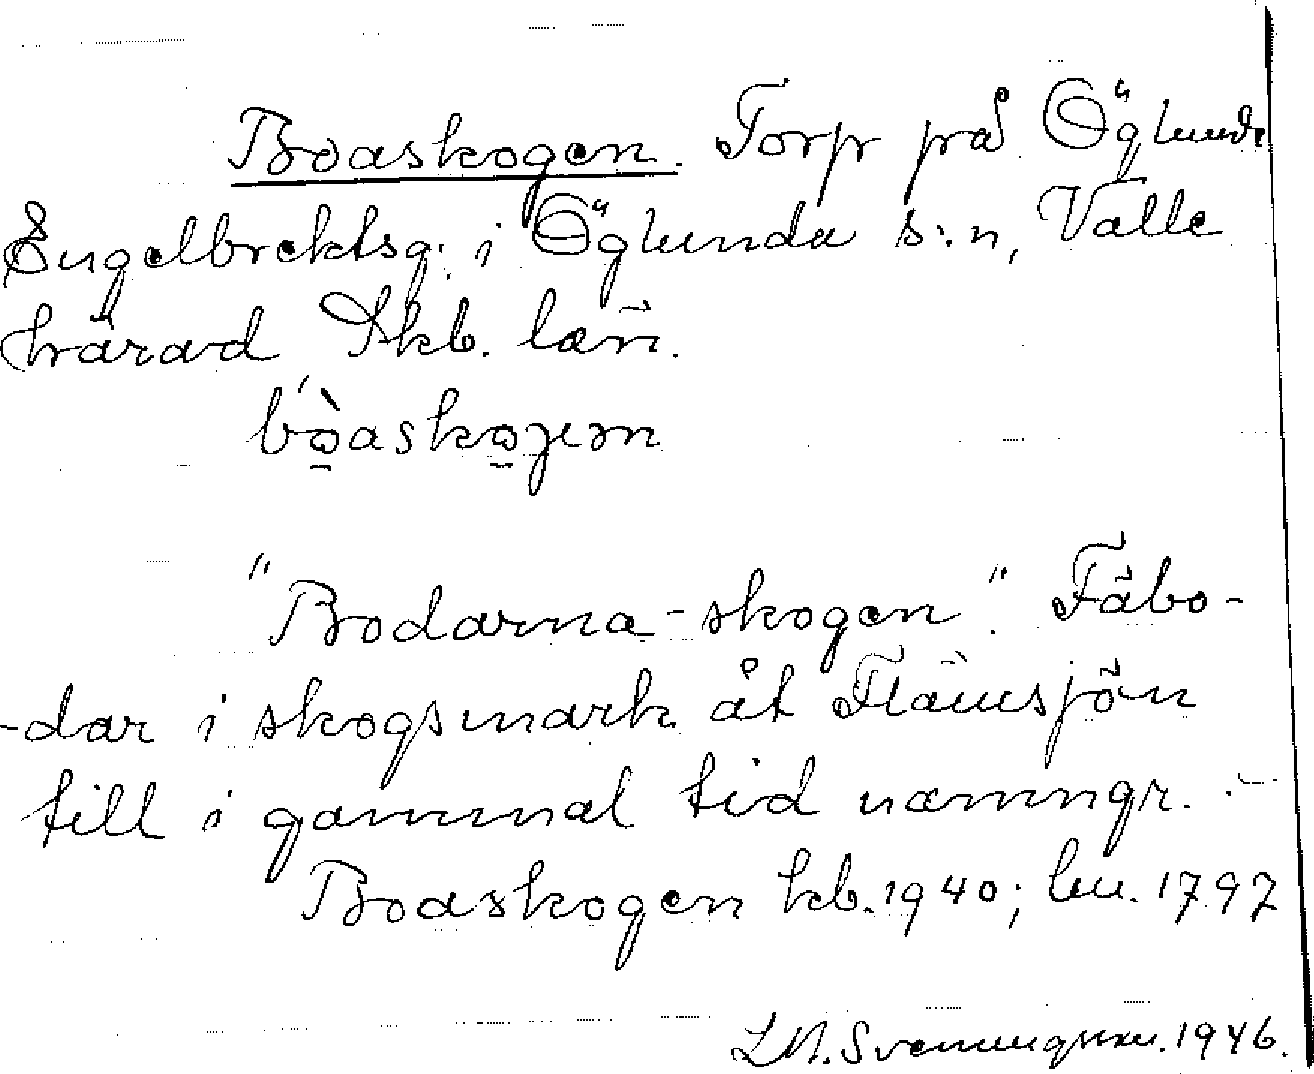 Boaskogen. Torp på Öglunda
Engelbrektsg. i Öglunda s:n, Valle
härad Skb. län.
bòaskogen
"Bodarna-skogen". Fäbo-
-dar i skogsmark åt Flämsjön
till i gammal tid
Boaskogen kb. 1940; 1797
1946.